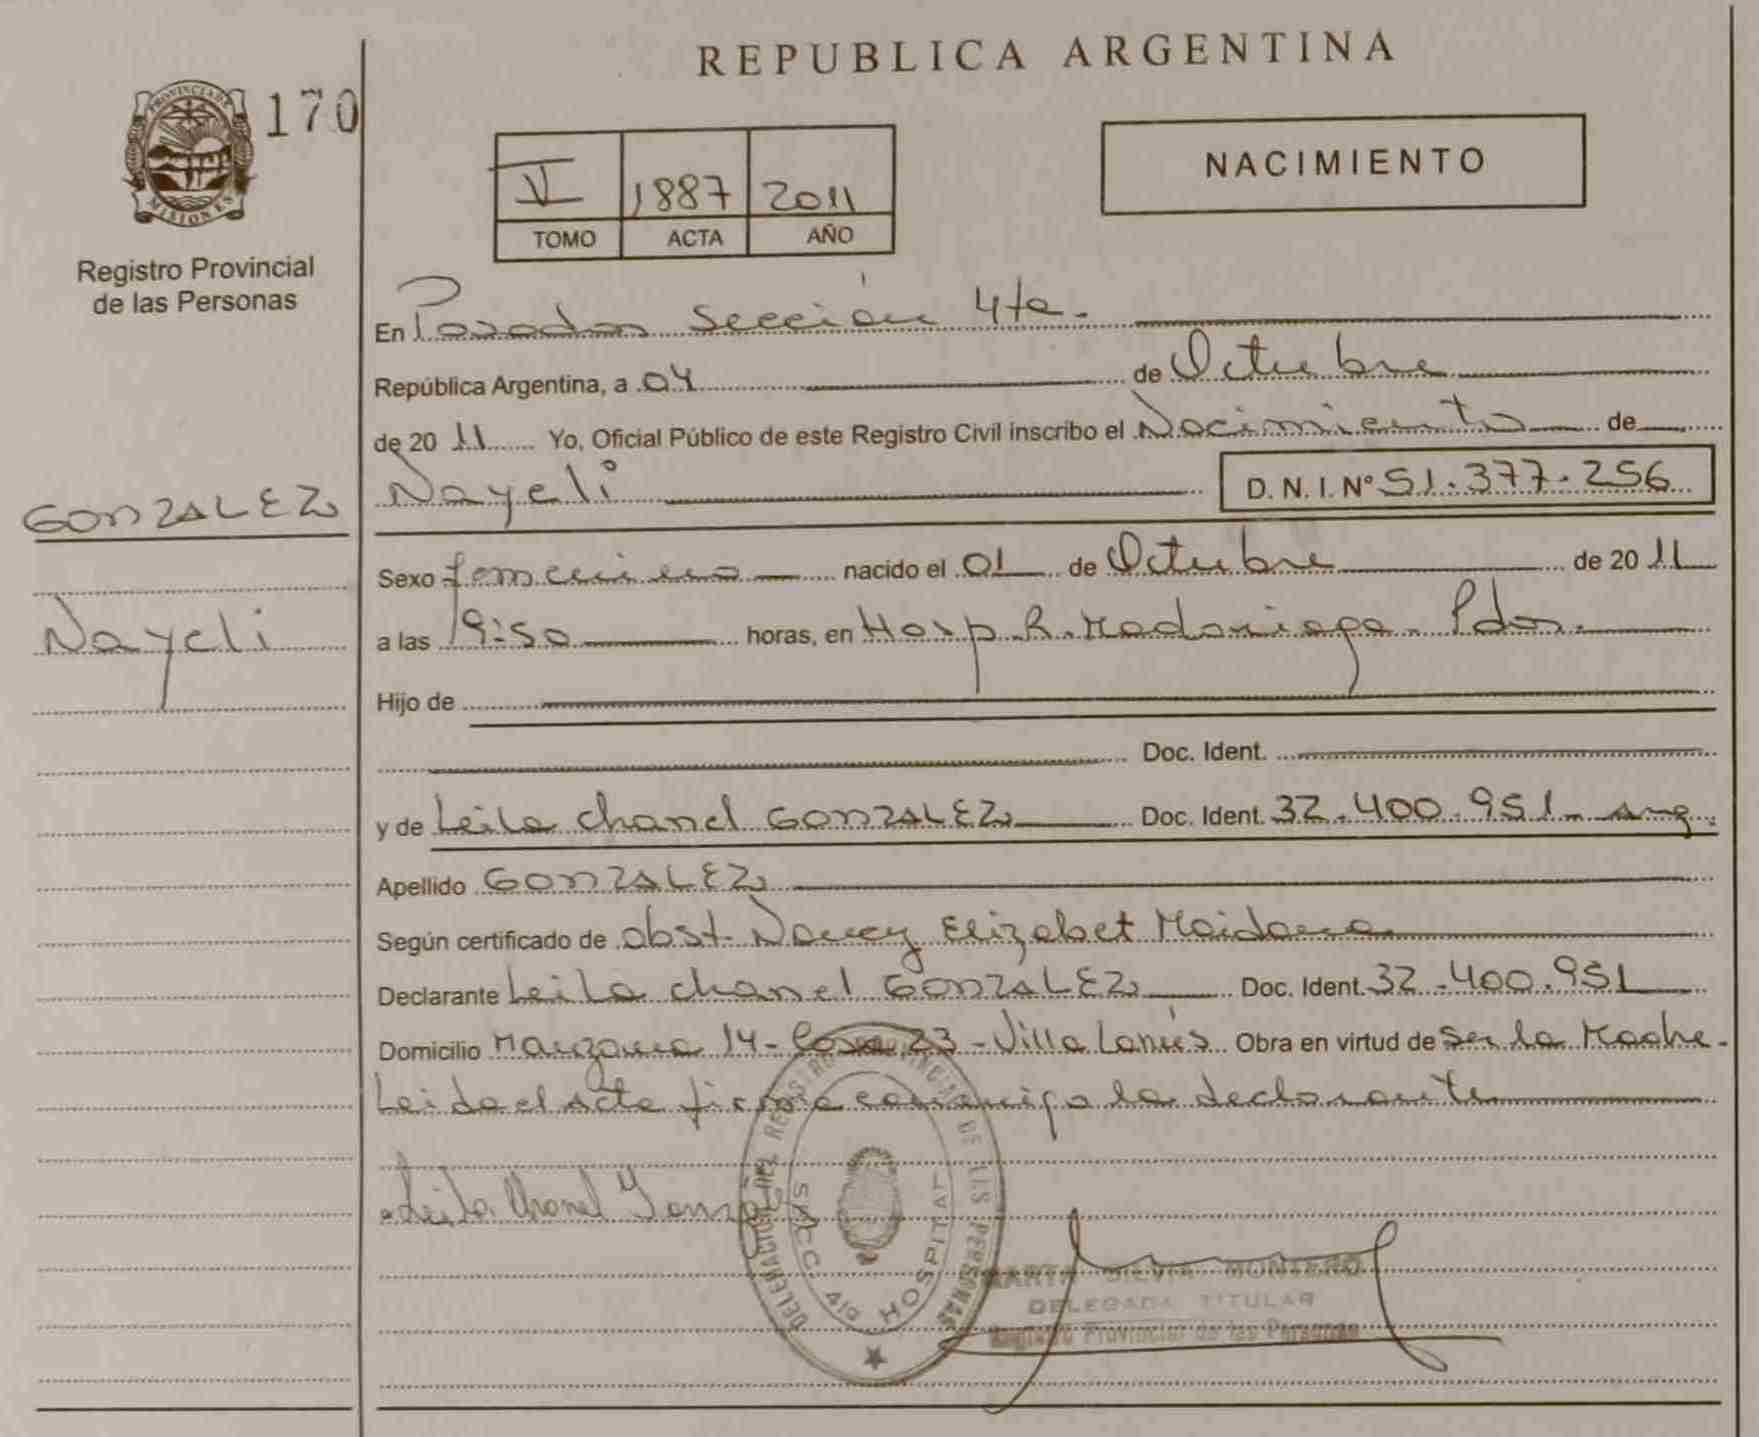 REPUBLICA ARGENTINA
PROVINCIA DE MISIONES
170
Registro Provincial
de las Personas
V 1887 2011
TOMO ACTA AÑO
NACIMIENTO
En Posadas Sección 4ta.
República Argentina, a 04 de Octubre
de 20 11 Yo, Oficial Público de este Registro Civil inscribo el Nacimiento de
Nayeli D. N. I. Nº 51.377.256
GONZALEZ
Nayeli
Sexo femenino nacido el 01 de Octubre de 20 11
a las 19:50 horas, en Hosp. R. Madariaga. Pdas.
Hijo de
Doc. Ident.
y de Leila Chanel GONZALEZ Doc. Ident. 32.400.951 - Arg.
Apellido GONZALEZ
Según certificado de obst. Nancy Elizabet Maidana
Declarante Leila Chanel GONZALEZ Doc. Ident. 32.400.951
Domicilio Manzana 14 - Casa 23 - Villa Lanús Obra en virtud de Ser la Madre.
Leida el Acta firma conmigo la declarante
Leila Chanel
SECC 4ta HOSPITAL
MARTA SILVIA MONTERO
DELEGADA TITULAR
Registro Provincial de las Personas